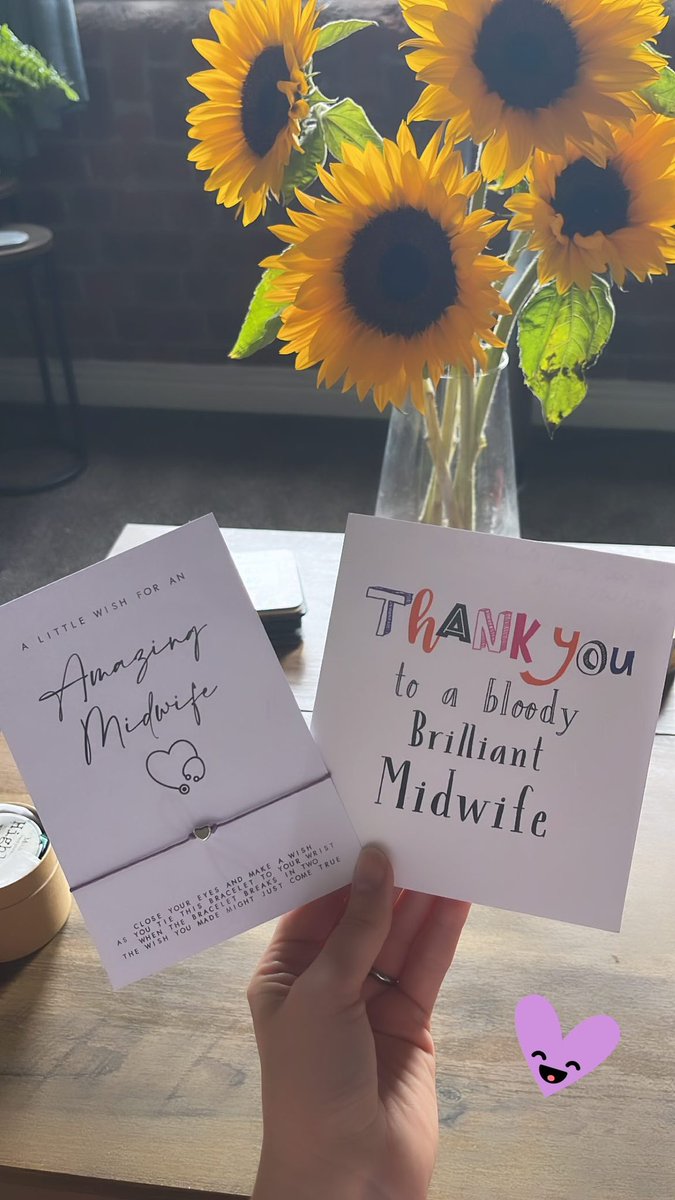 A LITTLE WISH FOR AN
Amazing
Midwife
CLOSE YOUR EYES AND MAKE A WISH
AS YOU TIE THIS BRACELET TO YOUR WRIST
WHEN THE BRACELET BREAKS IN TWO
THE WISH YOU MADE MIGHT JUST COME TRUE
THANK YOU
to a bloody
Brilliant
Midwife